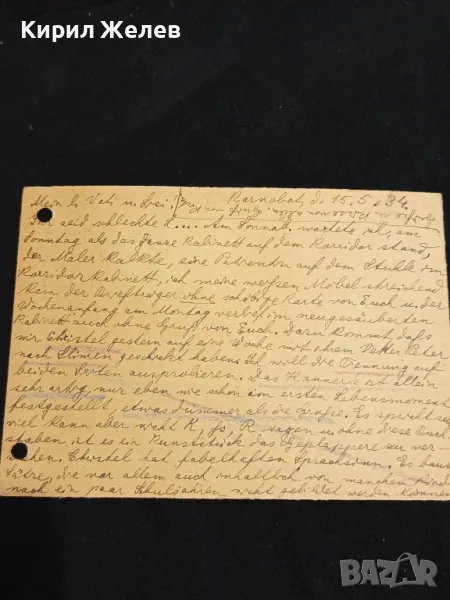 Кирил Желев
Mein l. Vati u. Lusi! Karnobat, d. 15.5.34.
Ihr seid schlechte L... Am Sonnab. wartete ich, am
Sonntag, als das ganze Kabinett auf dem Korridor stand,
der Maler kalkte, eine Patientin auf dem Stuhle im
Korridorkabinett, ich meine weißen Möbel streichend
kam der Briefträger ohne schöne Karte von Euch u. der
Wochenanfang am Montag verlief im neugesäuberten
Kabinett auch ohne Gruß von Euch. Dazu kommt daß
wir Christel gestern auf eine Woche mit ihrem Vetter Peter
nach geschickt haben. Ich will die Trennung auf
beiden Seiten ausprobieren. Das Hannerle ist allein
sehr artig, nur eben wie schon im ersten Lebensmoment
festgestellt, etwas dümmer als die Große. Es spricht sehr
viel kann aber nicht K, R sagen u. ohne diese Buch-
staben, ist es ein Kunststück das Geplappere zu ver-
stehen. Christel hat fabelhaften Sprachsinn. Es baut
Sätze, die vor allem auch inhaltlich von manchem Kind
nach ein paar Schuljahren nicht gebildet werden können
BAZAR